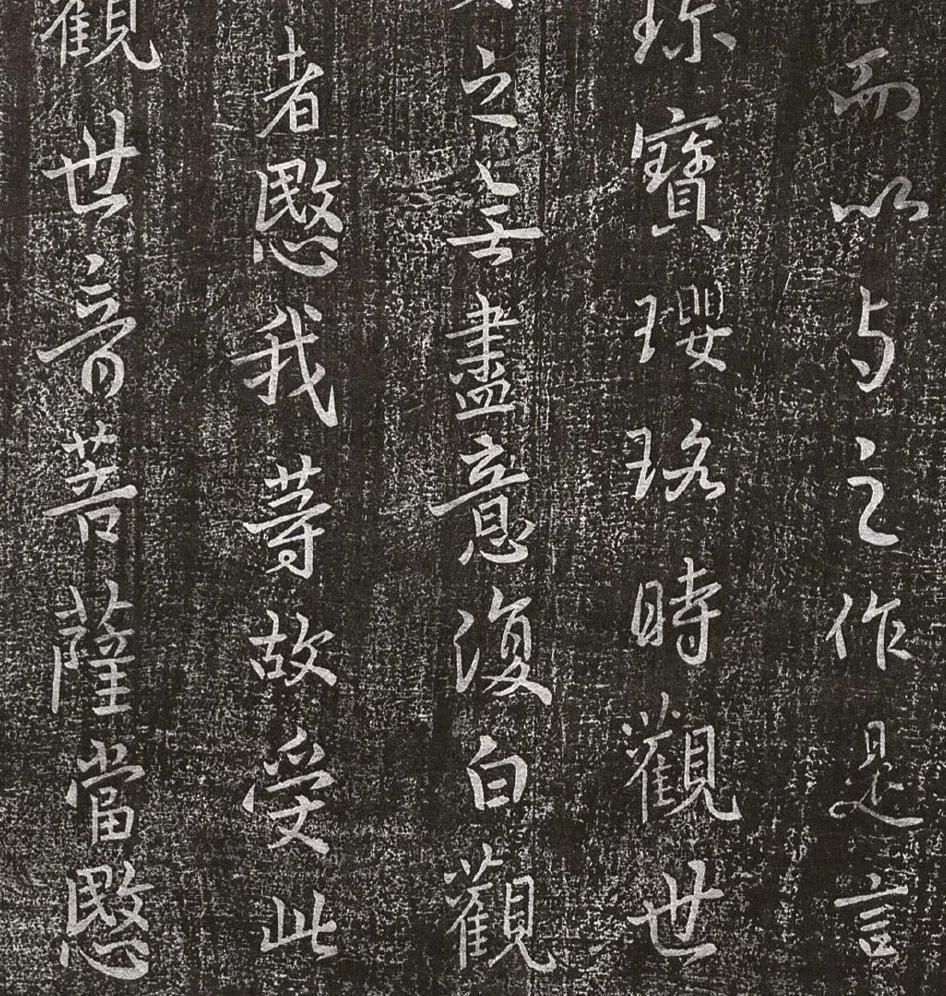 而以与之作是言
珎寶瓔珞時觀世
之無盡意復白觀
者愍我等故受此
觀世音菩薩當愍